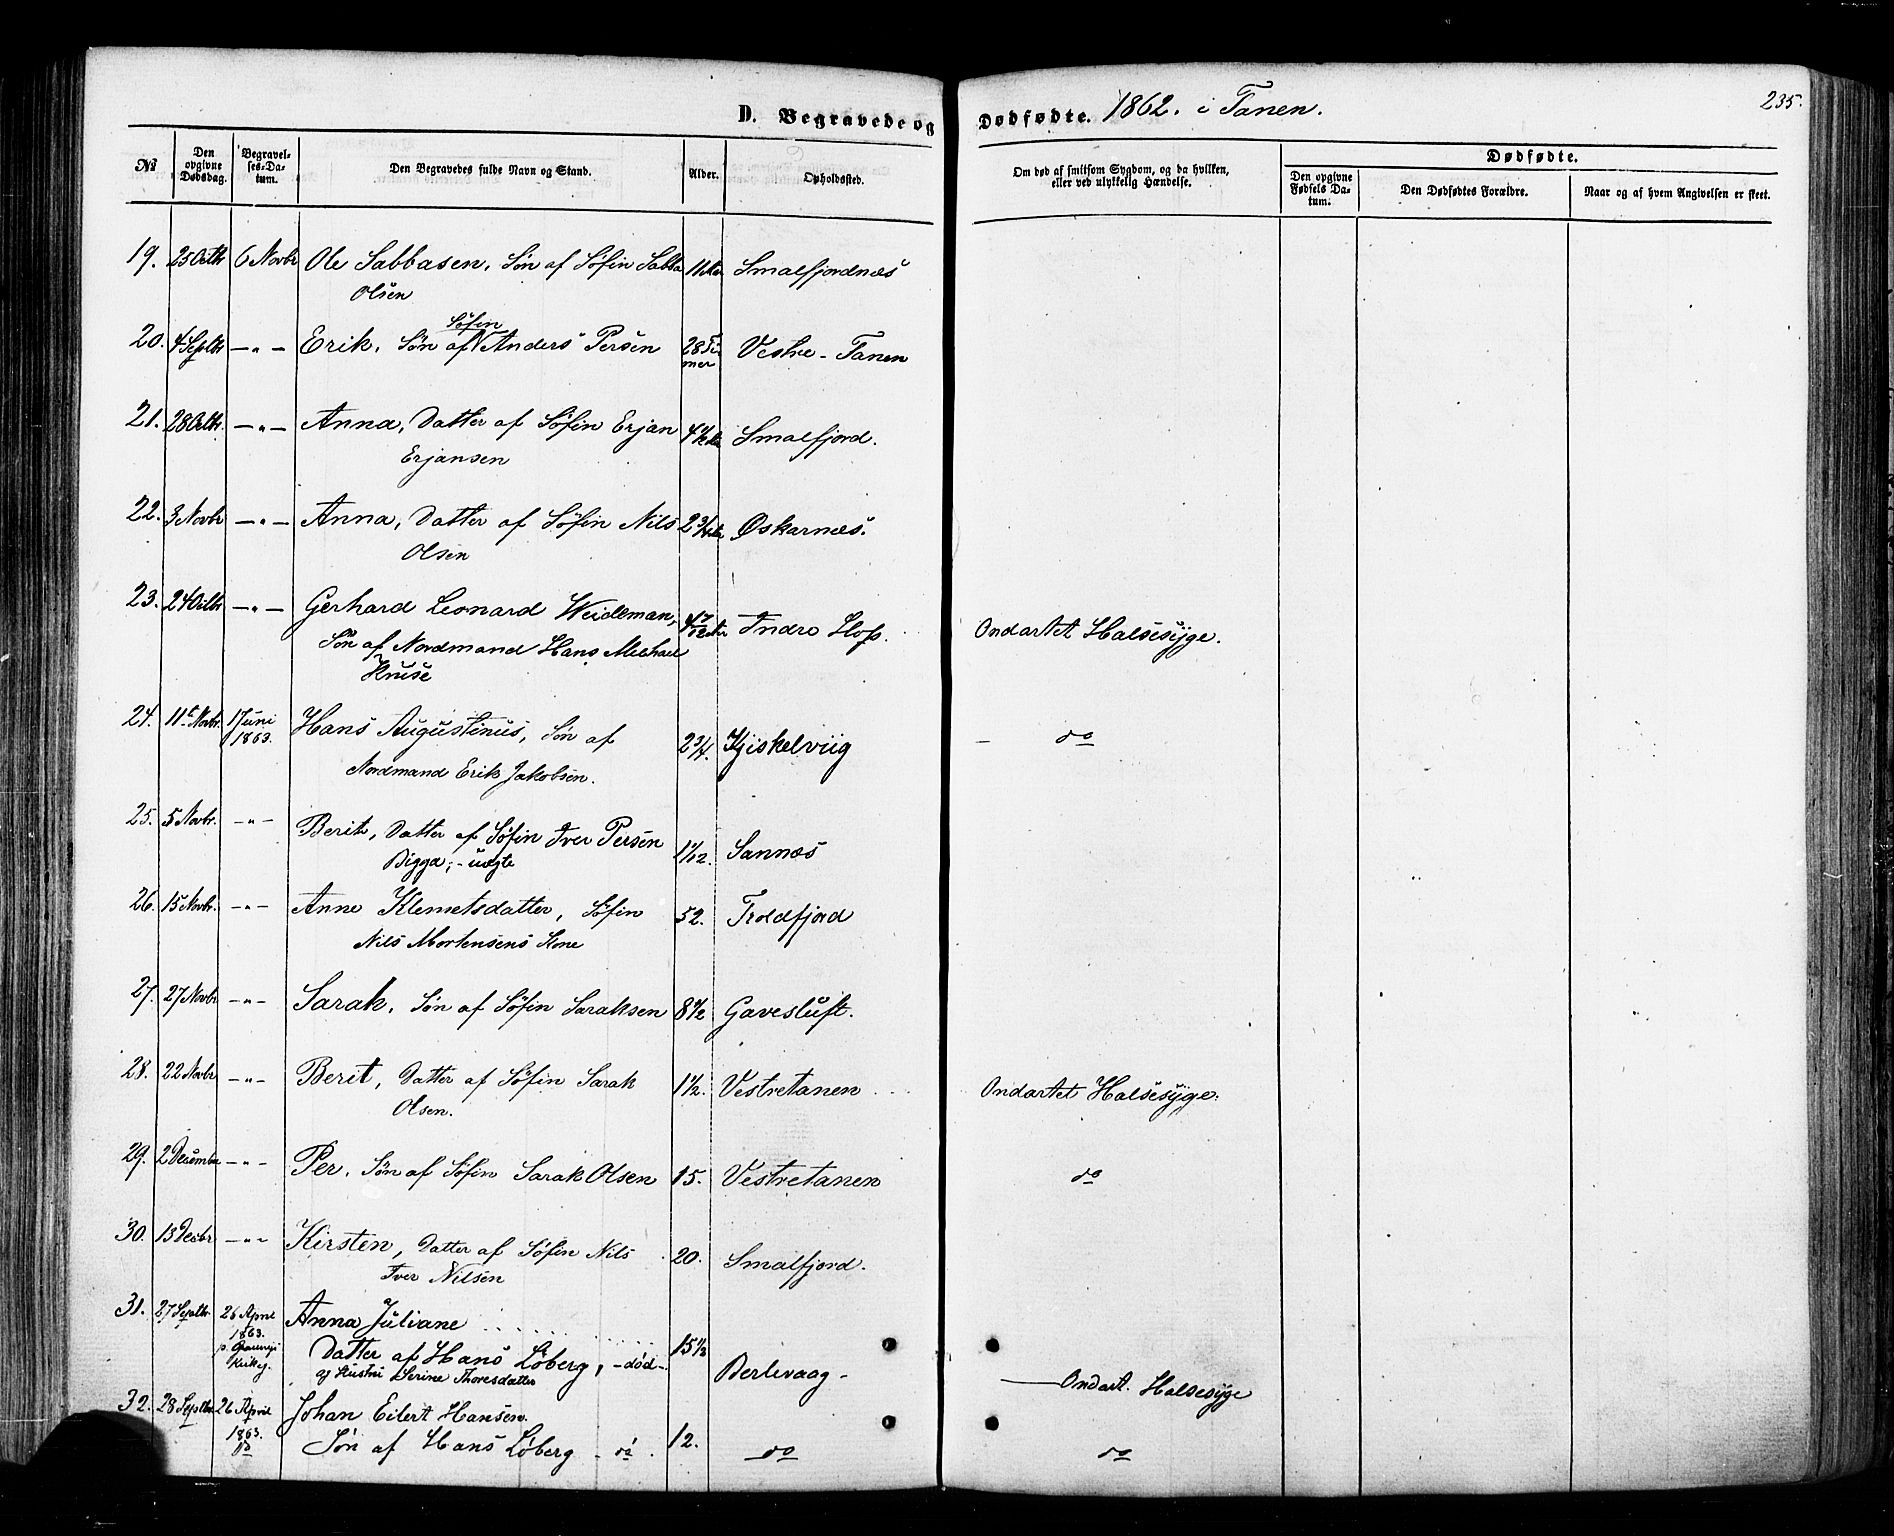 D. Begravede og Dødfødte. 1862. i Tanen. 235.
№ Den opgivne Dødsdag. Begravelses-Datum. Den Begravedes fulde Navn og Stand. Alder. Opholdssted. Om død af smitsom Sygdom, og da hvilken, eller ved ulykkelig Hændelse. Dødfødte. Den opgivne Fødsels Datum. Den Dødfødtes Forældre. Naar og af hvem Angivelsen er skeet.
19. 25 Octb 6 Novbr Ole Sabbasen, Søn af Søfin Sabba 11 Smalfjordnæs
Olsen
Søfin
20. 4 Septbr —"— Erik, Søn af Anders Persen 28 Ti Vestre-Tanen
mer
21. 28 Octb. —"— Anna, Datter af Søfin Erjan 4 1/2 Smalfjord.
Erjansen
22. 3 Novbr —"— Anna, Datter af Søfin Nils 2 3/4 Øskarnæs.
Olsen
23. 24 Octbr —"— Gerhard Leonard Weideman, 4 Indre Hop. Ondartet Halsesyge.
Søn af Nordmand Hans Michael
Kruse
24. 11t Novbr. 1 Juni Hans Augustinus, Søn af 2 3/4. Kjiskelviig — do
1863.
Nordmand Erik Jakobsen.
25. 5 Novbr. —"— Berit, Datter af Søfin Iver Persen 1 1/12. Sannæs
Bigga; - uægte
26. 15 Novbr. —"— Anne Klemetsdatter, Søfin 52. Troldfjord
Nils Mortensens Kone
27. 27 Novbr —"— Sarak, Søn af Søfin Saraksen 8 1/2 Gavesluft.
28. 22 Novbr —"— Berit, Datter af Søfin Sarak 1 1/2. Vestretanen Ondartet Halsesyge.
Olsen.
29. 2 Decembr —"— Per, Søn af Søfin Sarak Olsen 15. Vestretanen do
30. 13 Decbr —"— Kirsten, Datter af Søfin Nils 20. Smalfjord.
Iver Nilsen
31. 27 Septbr. 26 April Anna Juliane
1863.
Datter af Hans Løberg, - død -. 15 1/2 Berlevaag - — Ondart. Halsesyge
og Hustru Serine Thoresdatter
32. 28 Septbr. 26 April Johan Eilert Hansen.
1863.
do Søn af Hans Løberg - do. 12. do do